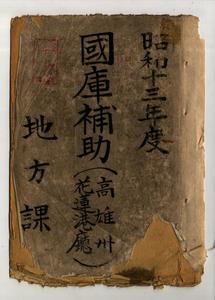 昭和十三年度
國庫補助(高雄州
花蓮港廳)
地方課